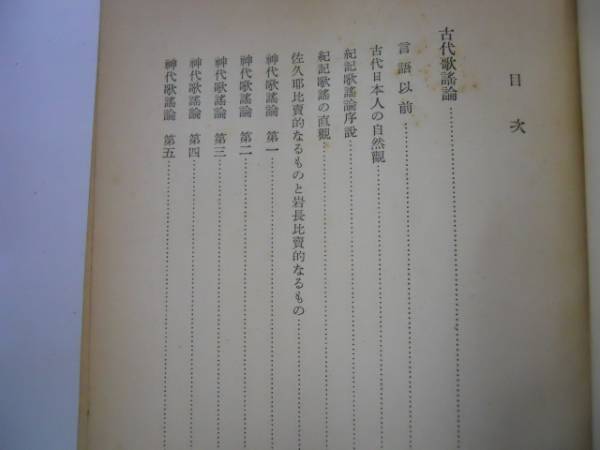 目次
古代歌謠論
言語以前
古代日本人の自然觀
紀記歌謠論序說
紀記歌謠の直觀
佐久耶比賣的なるものと岩長比賣的なるもの
神代歌謠論 第一
神代歌謠論 第二
神代歌謠論 第三
神代歌謠論 第四
神代歌謠論 第五